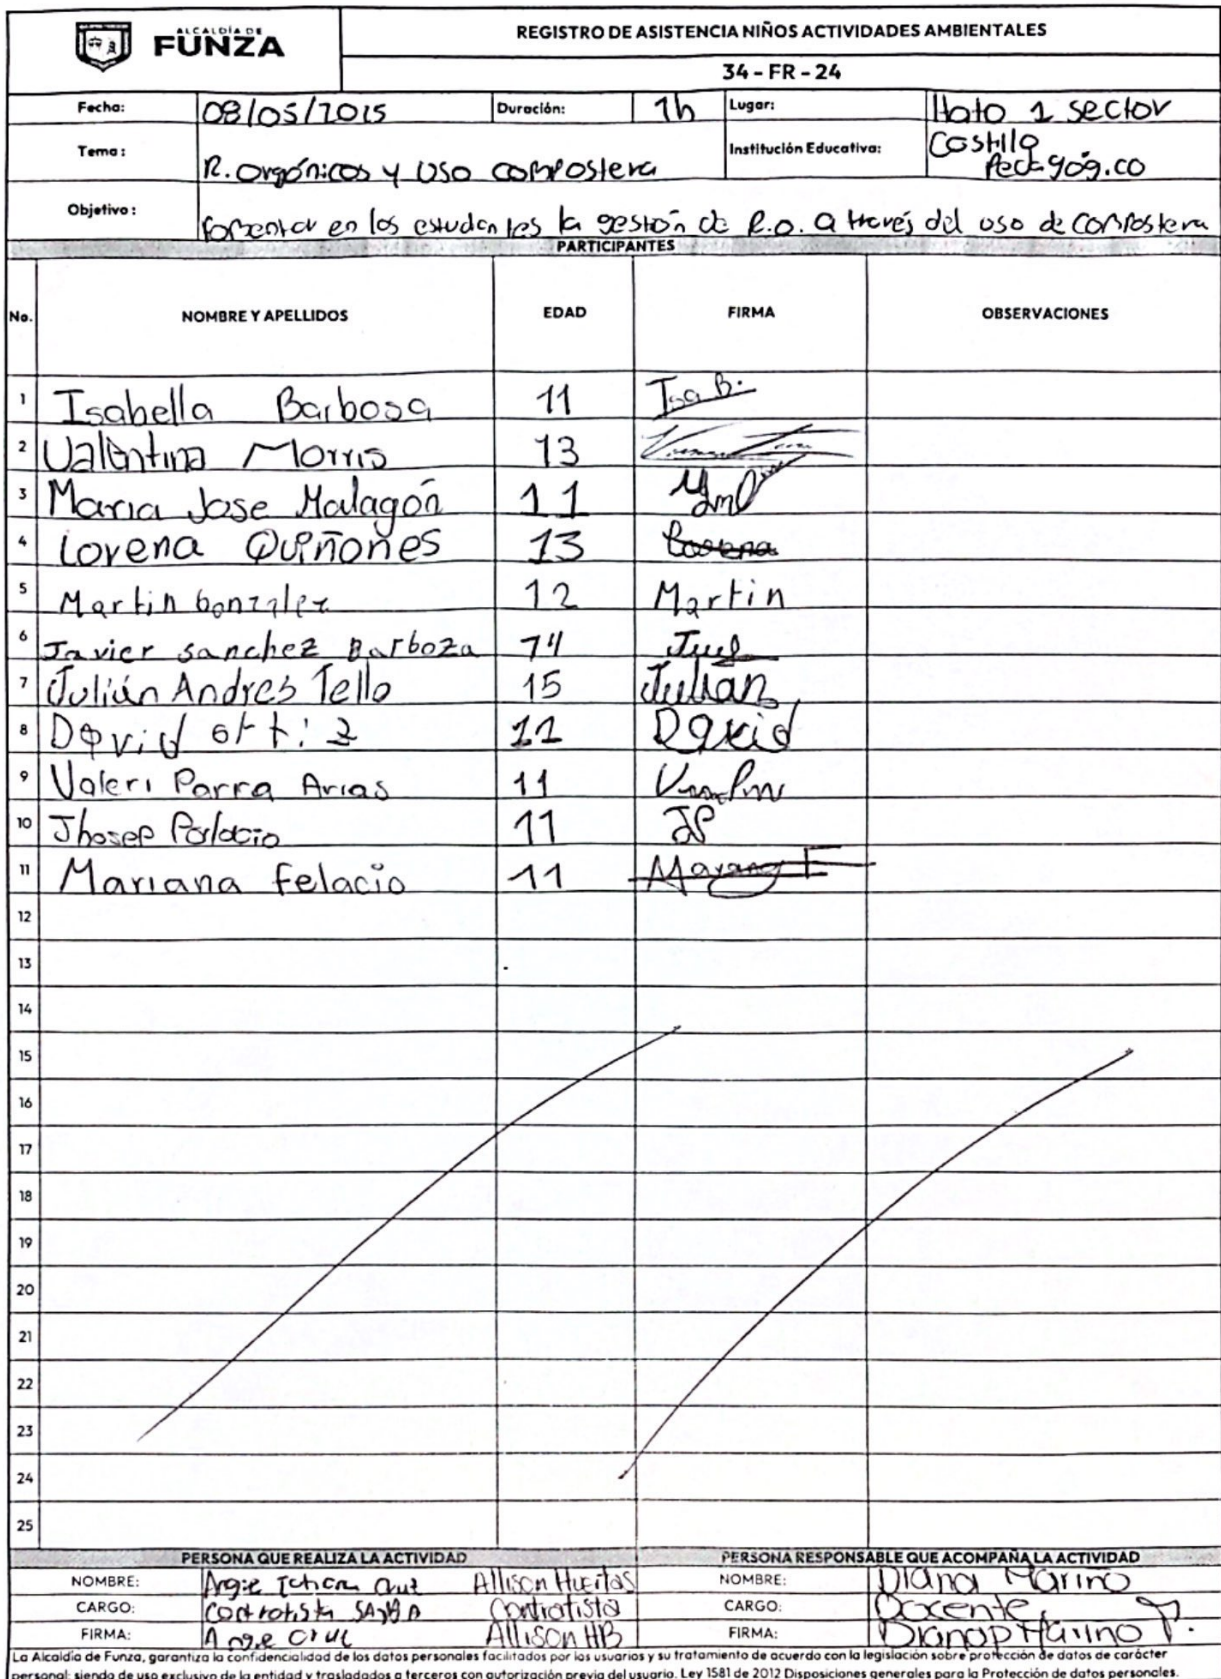 ALCALDÍA DE
FUNZA
REGISTRO DE ASISTENCIA NIÑOS ACTIVIDADES AMBIENTALES
34 - FR - 24
Fecha: 08/05/2025 Duración: 1h Lugar: Hato 1 sector
Tema: R. orgánicos y uso compostera Institución Educativa: Castillo Pedagógico
Objetivo: fomentar en los estudiantes la gestión de R.O. a través del uso de compostera
PARTICIPANTES
No. NOMBRE Y APELLIDOS EDAD FIRMA OBSERVACIONES
1 Isabella Barbosa 11 Isa B.
2 Valentina Morris 13
3 Maria Jose Malagón 11
4 Lorena Quiñones 13 Lorena
5 Martin Gonzalez 12 Martin
6 Javier sanchez Barboza 14
7 Julián Andres Tello 15 Julian
8 David ortiz 11 David
9 Valeri Parra Arias 11
10 Jhosep Palacio 11 JP
11 Mariana felacio 11 Mariana F
12
13
14
15
16
17
18
19
20
21
22
23
24
25
PERSONA QUE REALIZA LA ACTIVIDAD PERSONA RESPONSABLE QUE ACOMPAÑA LA ACTIVIDAD
NOMBRE: Angie Cruz Allison Huertas NOMBRE: Diana Mariño
CARGO: Contratista Contratista CARGO: Docente
FIRMA: Angie Cruz Allison HB FIRMA: Diana P Mariño
La Alcaldía de Funza, garantiza la confidencialidad de los datos personales facilitados por los usuarios y su tratamiento de acuerdo con la legislación sobre protección de datos de carácter
personal; siendo de uso exclusivo de la entidad y trasladados a terceros con autorización previa del usuario. Ley 1581 de 2012 Disposiciones generales para la Protección de datos personales.